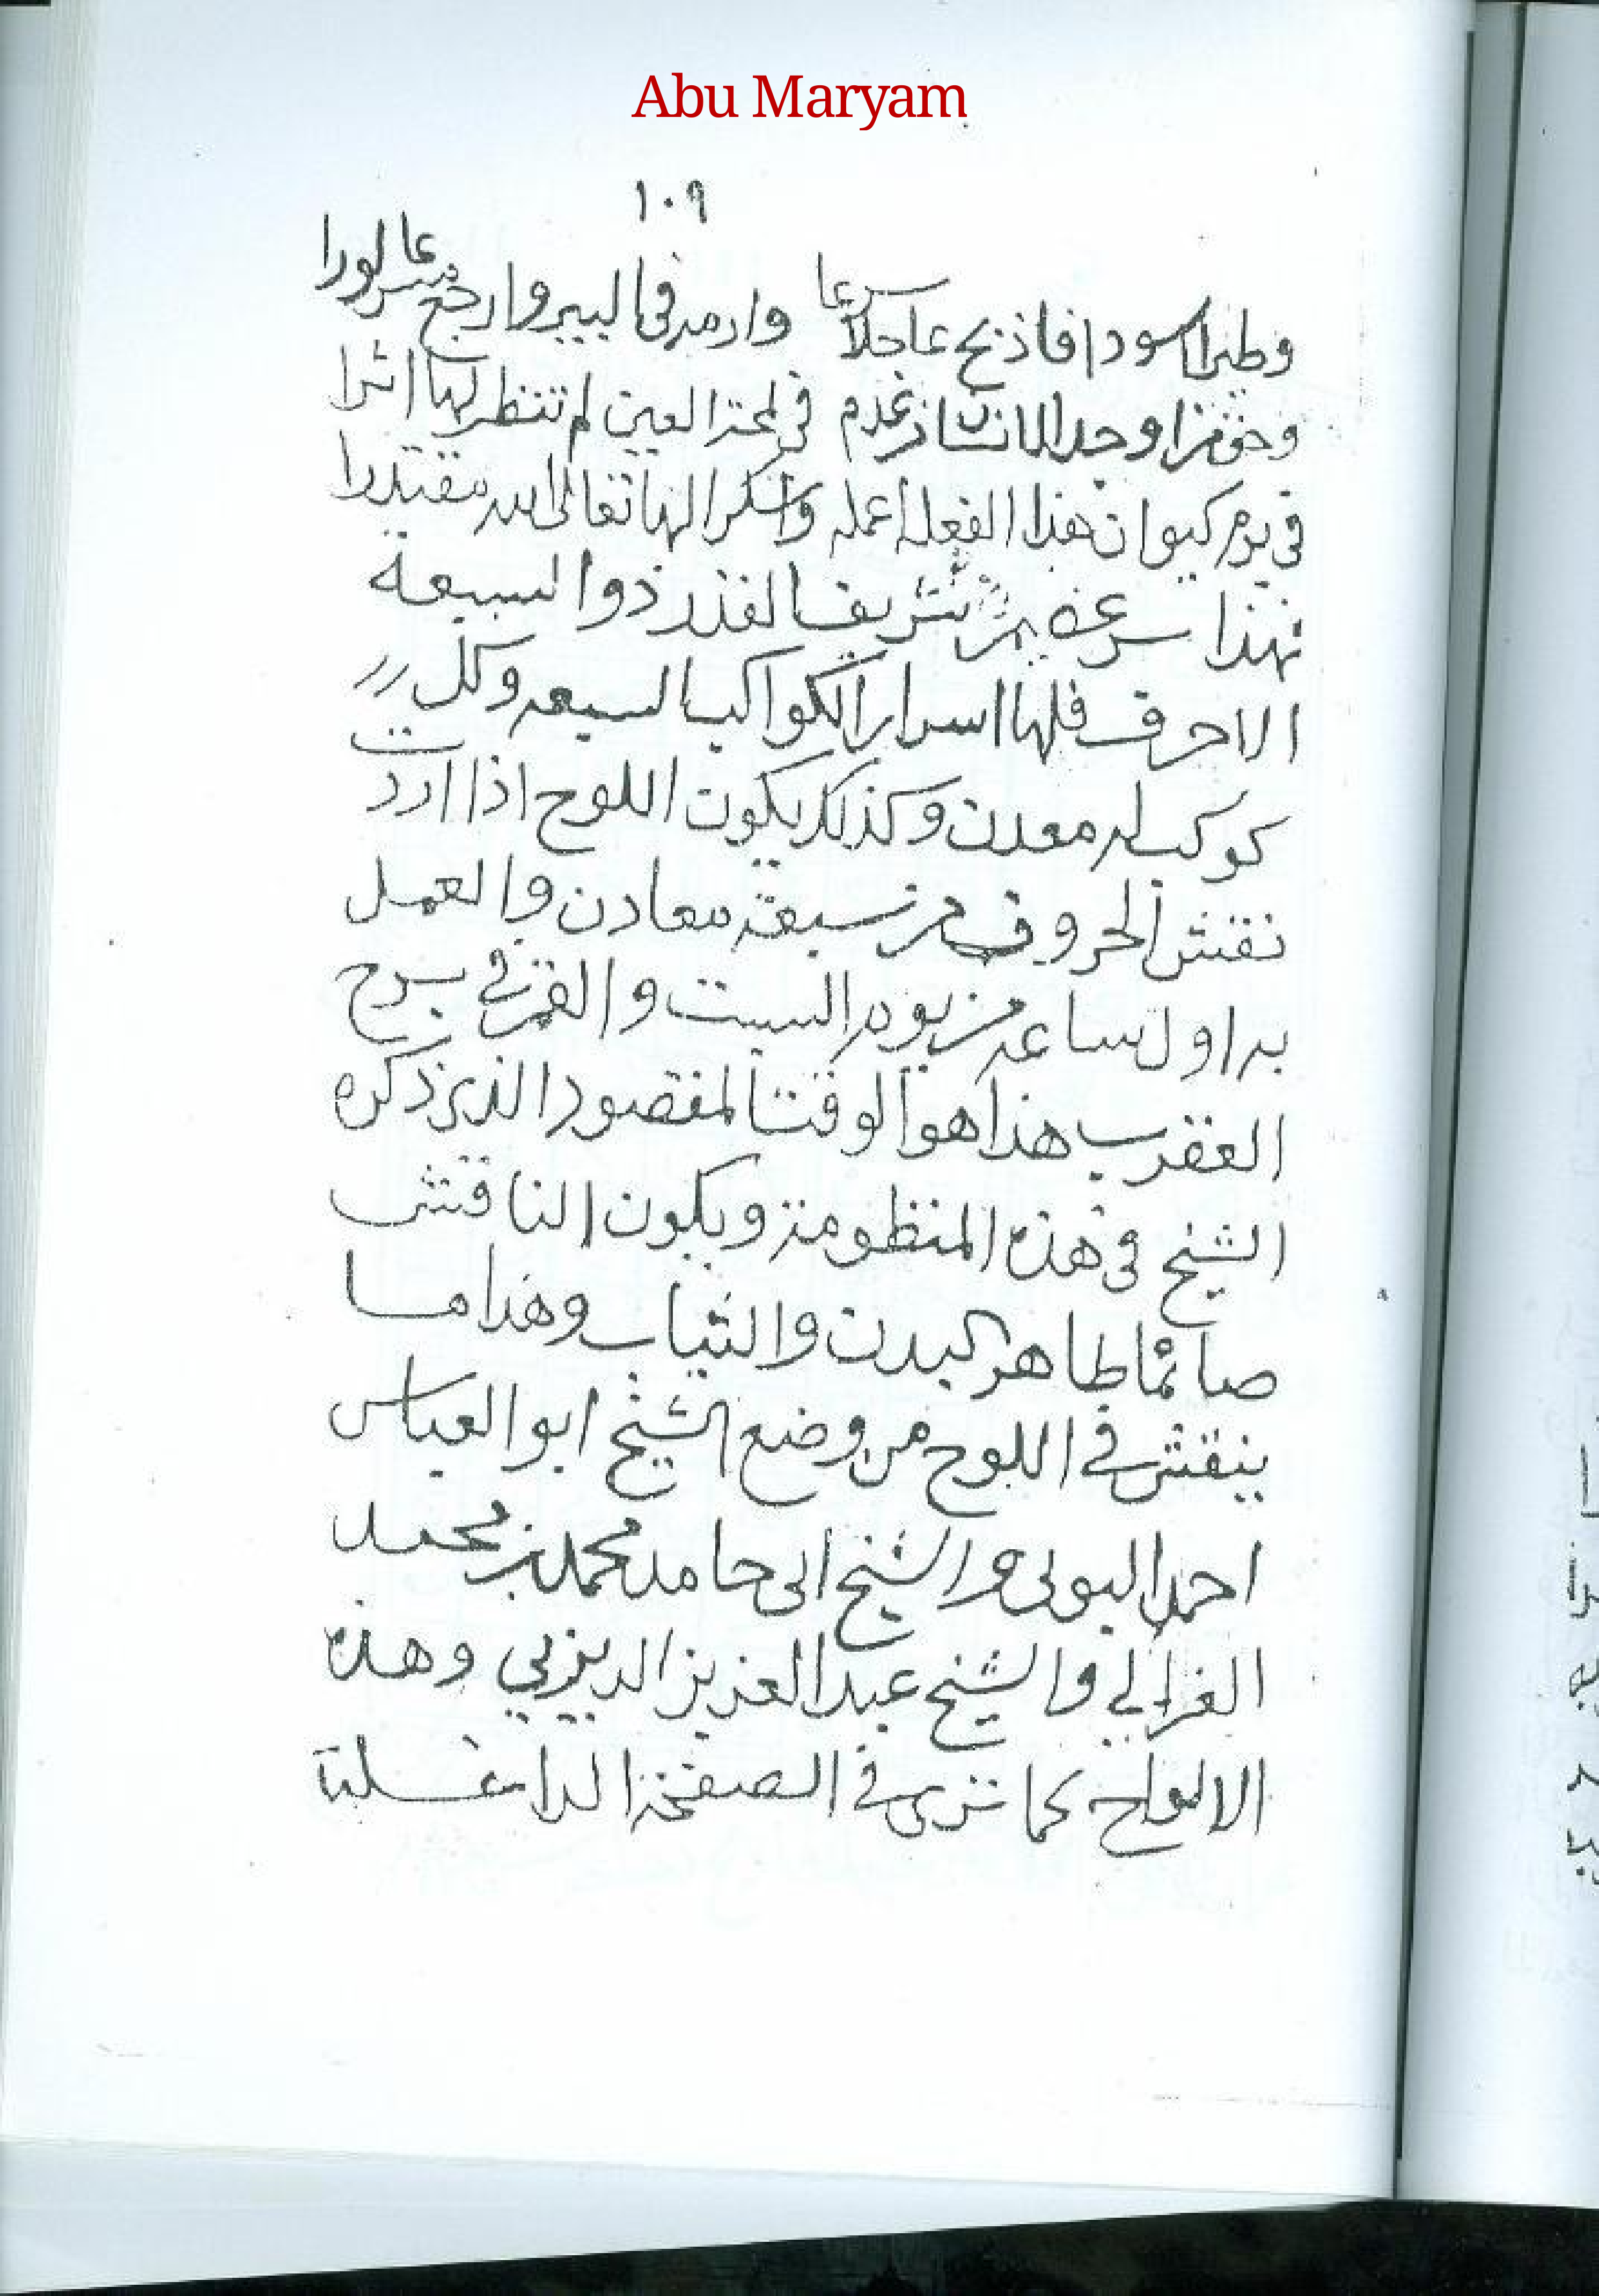 Abu Maryam
١٠٩
وطيرا اسودا فاذبح عاجلا سرعا وارمه في البير وارجع مسرعا لورا
وحق من اوجد الانشا من عدم في لمحة العين لم تنظر لها اثرا
في يوم كيوان هذا الفعل أعمله واشكر الها تعالى الله مقتدرا
فهذا سرعة شريف القدر ذوا السبعة
الاحرف فلها اسرار الكواكب السبعه وكل
كوكب له معدن وكذلك يكون اللوح اذا اردت
نقش الحروف من سبعة معادن والعمل
به اول ساعه من يوم السبت والقمر في برج
العقرب هذا هو الوقت المقصود الذي ذكره
الشيخ في هذه المنظومة ويكون الناقش
صائما طاهر البدن والثياب وهذا ما
ينقش في اللوح من وضع الشيخ ابو العباس
احمد البوني والشيخ ابى حامد محمد بن محمد
الغزالي والشيخ عبد العزيز الديريني وهذه
الالواح كما ترى في الصفحة